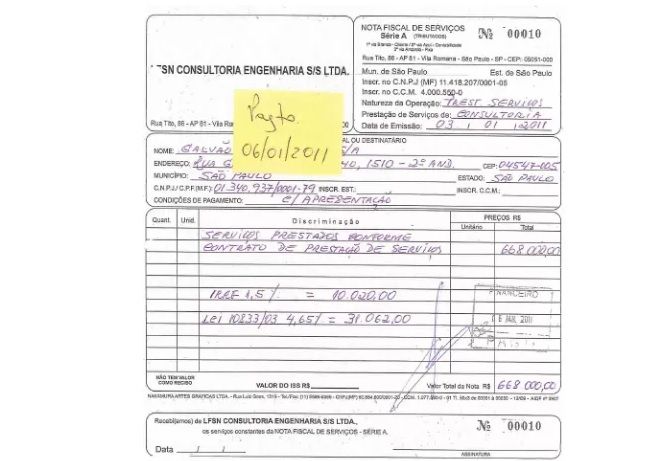 NOTA FISCAL DE SERVIÇOS
Série A (TRIBUTADOS)
Nº 00010
1ª via Branca - Cliente / 2ª via Azul - Contabilidade
3ª via Amarela - Fixa
Rua Tito, 86 - AP 81 - Vila Romana - São Paulo - SP - CEP: 05051-000
SN CONSULTORIA ENGENHARIA S/S LTDA.
Mun. de São Paulo Est. de São Paulo
Inscr. no C.N.P.J (MF) 11.418.207/0001-05
Inscr. no C.C.M. 4.000.550-0
Natureza da Operação: PREST. SERVIÇOS
Prestação de Serviços de: CONSULTORIA
Data de Emissão: 03 / 01 / 2011
Rua Tito, 86 - AP 81 - Vila Romana
Pagto
06/01/2011
AL OU DESTINATÁRIO
NOME: GALVÃO S/A
ENDEREÇO: RUA G 1510 - 2º AND. CEP: 04547-005
MUNICÍPIO: SÃO PAULO ESTADO: SÃO PAULO
C.N.P.J/C.P.F.(M.F.) 01.340.937/0001-79 INSCR. EST.: INSCR. C.C.M.:
CONDIÇÕES DE PAGAMENTO: C/ APRESENTAÇÃO
Quant. Unid. Discriminação PREÇOS R$
Unitário Total
SERVIÇOS PRESTADOS CONFORME
CONTRATO DE PRESTAÇÃO DE SERVIÇOS 668.000,00
IRRF 1,5% = 10.020,00
LEI 10833/03 4,65% = 31.062,00
NANCEIRO
JAN. 2011
NÃO TEM VALOR
COMO RECIBO
VALOR DO ISS R$
Valor Total da Nota R$ 668.000,00
Recebi(emos) de LFSN CONSULTORIA ENGENHARIA S/S LTDA.,
os serviços constantes da NOTA FISCAL DE SERVIÇOS - SÉRIE A.
Nº 00010
Data / /
ASSINATURA